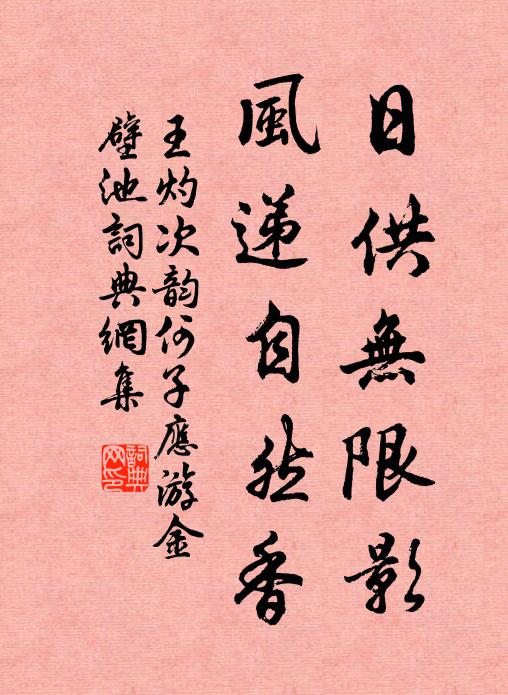 日供無限影
風递自然香
王灼次韵何子應游金
壁池詞典網集
詞典
网印